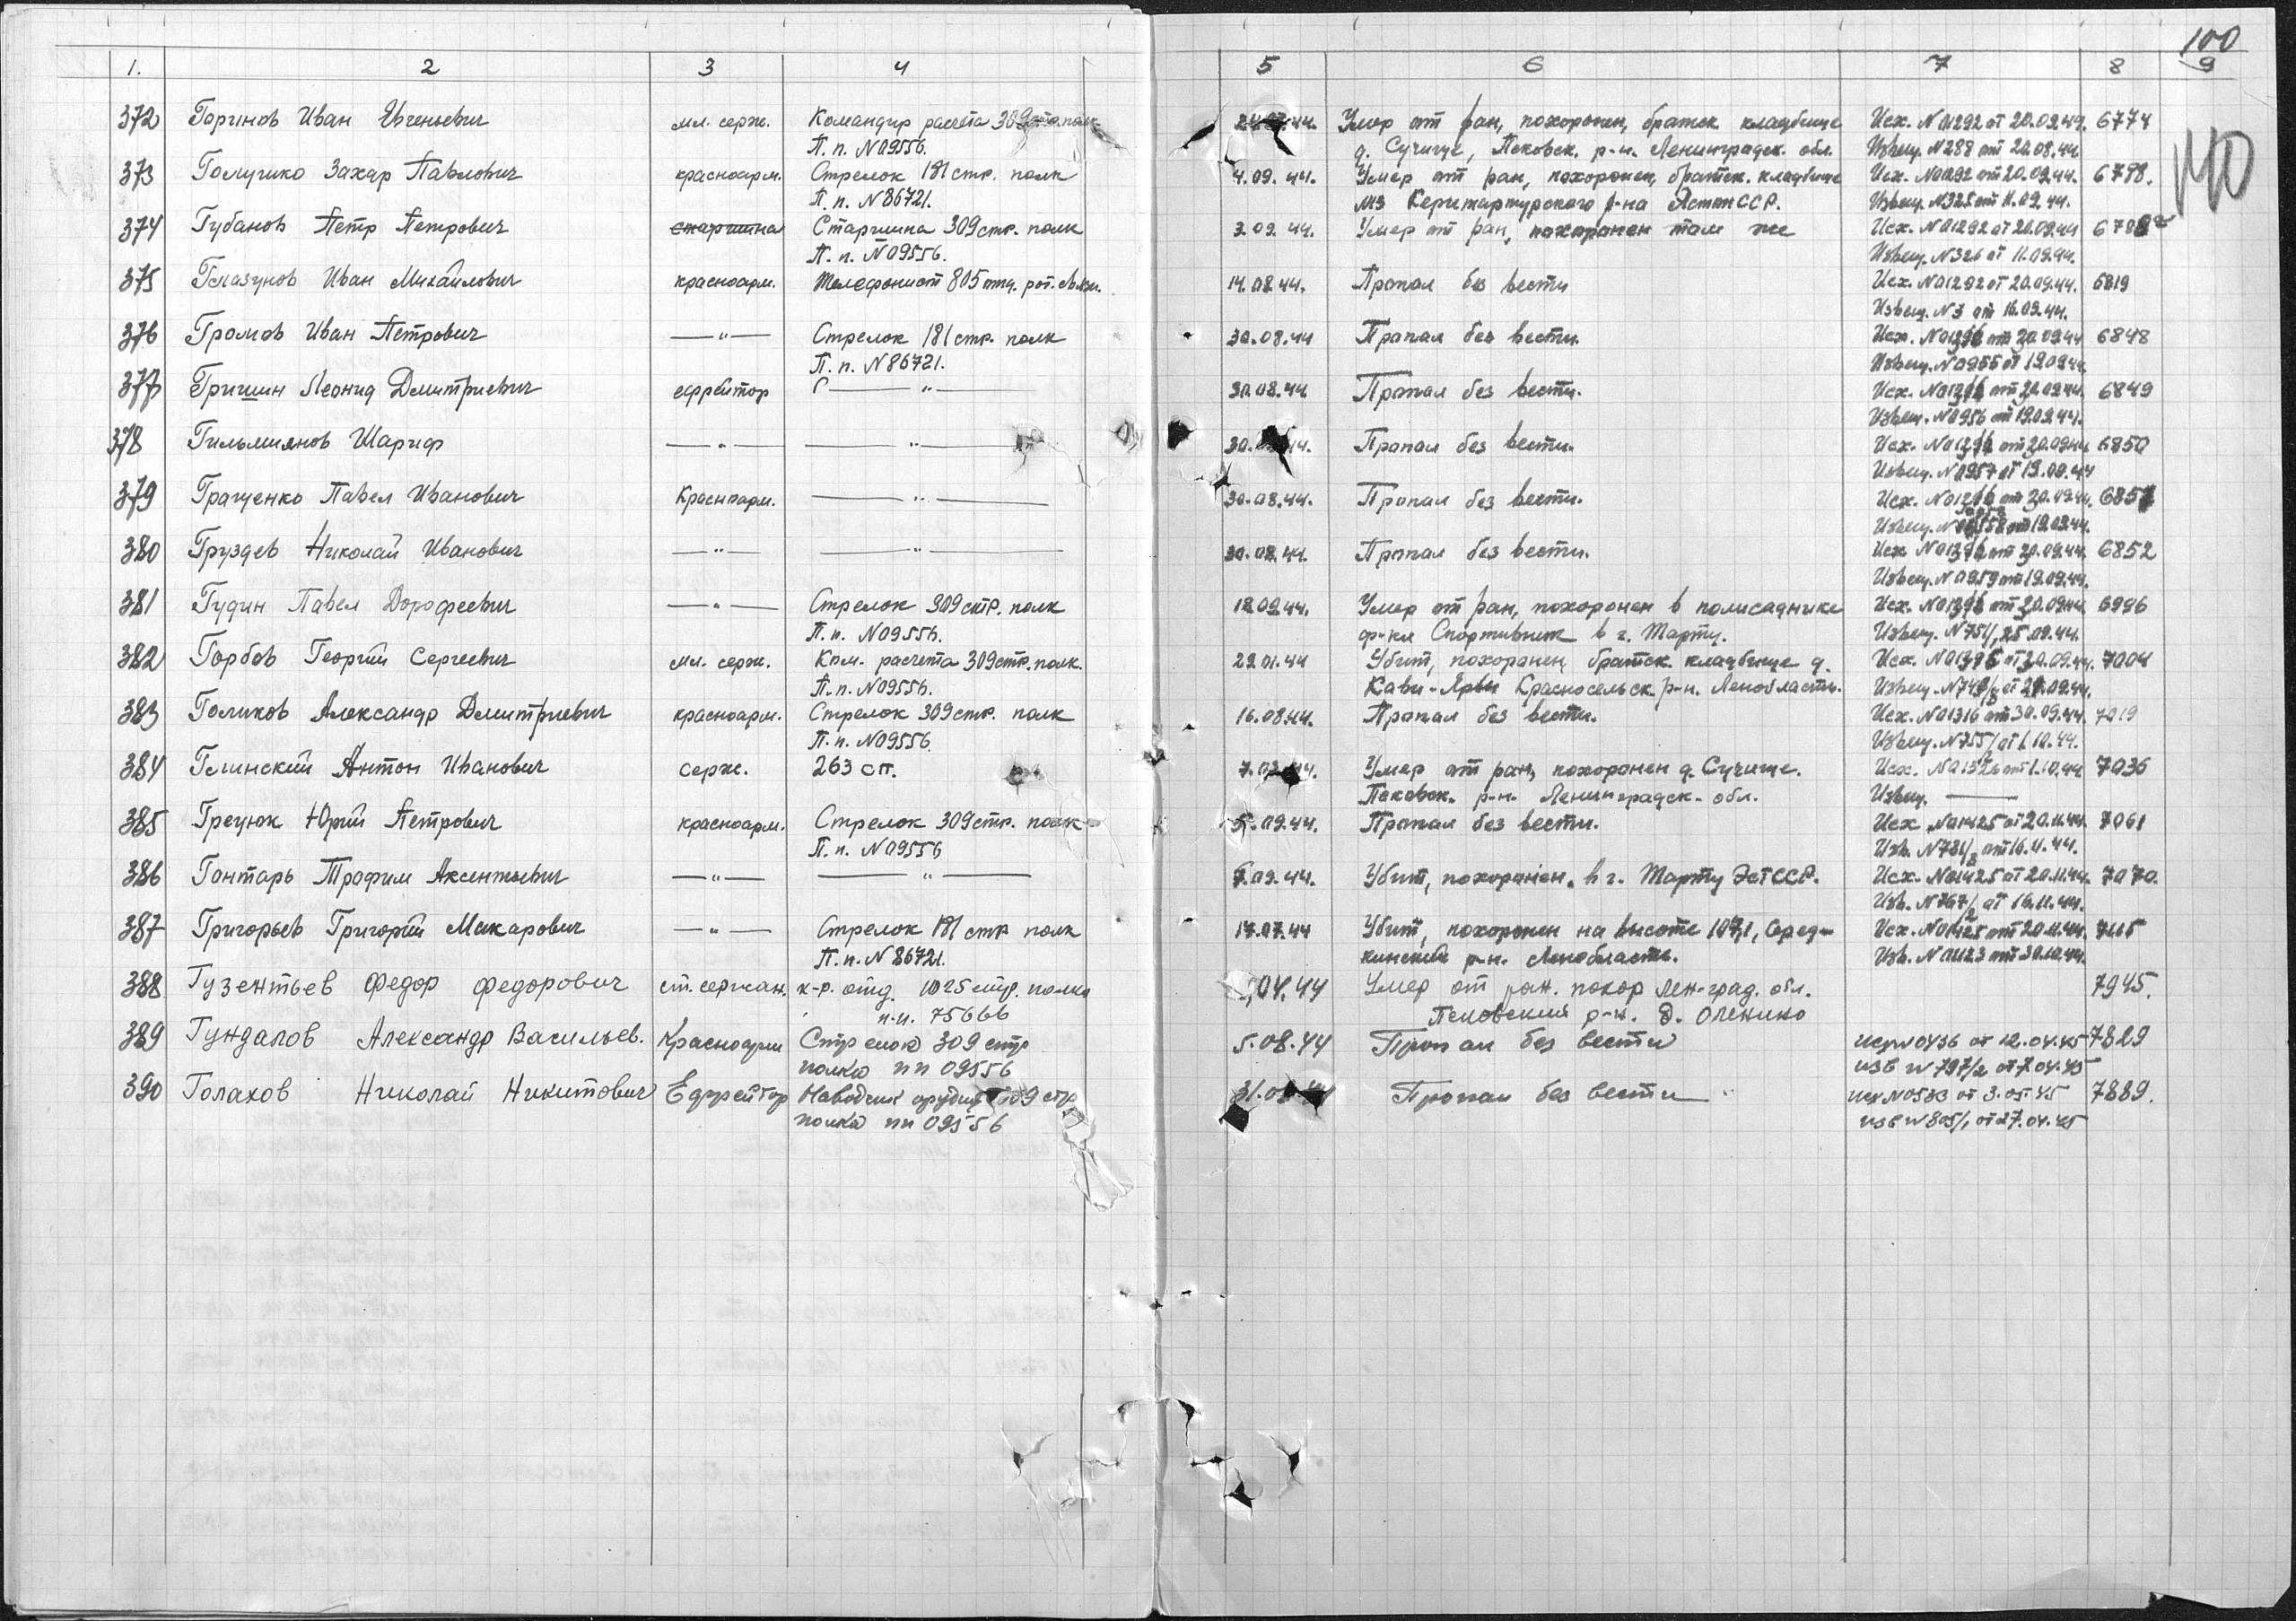 100
1. 2 3 4 5 6 7 8 9
140
372 Горинов Иван Евгеньевич мл. серж. Командир расчета 309 стр. полк 44. Умер от ран, похоронен, братск кладбище Исх. N 01292 от 20.09.44. 6774
П. п. N 09556. д. Сучище, Псковск. р-н. Ленинградск. обл. Извещ. N 288 от 20.08.44
373 Голушко Захар Павлович красноарм. Стрелок 181 стр. полк 4.09.44. Умер от ран, похоронен, братск. кладбище Исх. N 01292 от 20.09.44. 6798.
П. п. N 86721. мз р-на ЭстонССР. Извещ. N 325 от 11.09.44.
374 Губанов Петр Петрович старшина Старшина 309 стр. полк 3.09.44. Умер от ран, похоронен там же Исх. N 01292 от 20.09.44
П. п. N 09556. Извещ. N 326 от 11.09.44.
375 Глазунов Иван Михайлович красноарм. Телефонист 805 отд. рот. связи. 14.08.44. Пропал без вести Исх. N 01292 от 20.09.44. 6819
Извещ. N 3 от 16.09.44.
376 Громов Иван Петрович —"— Стрелок 181 стр. полк 30.08.44 Пропал без вести. Исх. от 20.09.44 6848
П. п. N 86721. Извещ. N 0955 от 19.09.44
377 Гришин Леонид Дмитриевич ефрейтор —"— 30.08.44 Пропал без вести. Исх. от 20.09.44. 6849
Извещ. N 0956 от 19.09.44.
378 Гильмиянов Шариф —"— —"— 30. 44. Пропал без вести. Исх. от 20.09.44 6850
Извещ. N 0957 от 19.09.44
379 Гращенко Павел Иванович Красноарм. —"— 30.08.44. Пропал без вести. Исх. от 20.09.44. 6851
Извещ. от 19.09.44.
380 Груздев Николай Иванович —"— —"— 30.08.44. Пропал без вести. Исх. от 20.09.44. 6852
Извещ. N 0959 от 19.09.44.
381 Гудин Павел Дорофеевич —"— Стрелок 309 стр. полк 18.09.44. Умер от ран, похоронен в полисаднике Исх. от 20.09.44 6996
П. п. N 09556. ф-ки Спортивник в г. Тарту. Извещ. N 751/, 25.09.44.
382 Горбов Георгий Сергеевич мл. серж. Ком. расчета 309 стр. полк. 29.01.44 Убит, похоронен, братск. кладбище д. Исх. от 30.09.44. 7004
П. п. N 09556. Кави-Ярви Красносельск р-н. Ленобласть. Извещ. от 09.44.
383 Голиков Александр Дмитриевич красноарм. Стрелок 309 стр. полк 16.08.44. Пропал без вести. Исх. N 01316 от 30.09.44. 7019
П. п. N 09556. Извещ. N 755/ от 1.10.44.
384 Глинский Антон Иванович серж. 263 сп. 7. 44. Умер от ран, похоронен д. Сучище. Исх. N 01326 от 1.10.44 7036
Псковск. р-н. Ленинградск. обл. Извещ. —
385 Грецюк Юрий Петрович красноарм. Стрелок 309 стр. полк 5.09.44. Пропал без вести. Исх N 01425 от 20.11.44. 7061
П. п. N 09556 Изв. N 781/2 от 16.11.44.
386 Гонтарь Трофим Аксентьевич —"— —"— .09.44. Убит, похоронен. в г. Тарту ЭстССР. Исх. N 01425 от 20.11.44. 7070.
Изв. N 767/2 от 16.11.44.
387 Григорьев Григорий Макарович —"— Стрелок 181 стр полк 17.07.44 Убит, похоронен на высоте 107,1, Серед- Исх. N 01425 от 20.11.44. 7115
П. п. N 86721. кинский р-н. Ленобласть. Изв. N 01123 от 30.10.44.
388 Гузентьев Федор Федорович ст. сержан. к-р. отд. 1025 стр. полка .04.44 Умер от ран. похор Лен-град. обл. 7945.
п.п. 75666 Псковский р-н. д. Оленино
389 Гундалов Александр Васильев. Красноарм Стрелок 309 стр 5.08.44 Пропал без вести исх N 0436 от 12.04.45 7829
полка пп 09556 изв N 797/2 от 7.04.45
390 Голахов Николай Никитович Ефрейтор Наводчик орудия 309 стр 31.0 Пропал без вести исх N 0583 от 3.05.45 7889.
полка пп 09556 изв N 805/1 от 27.04.45